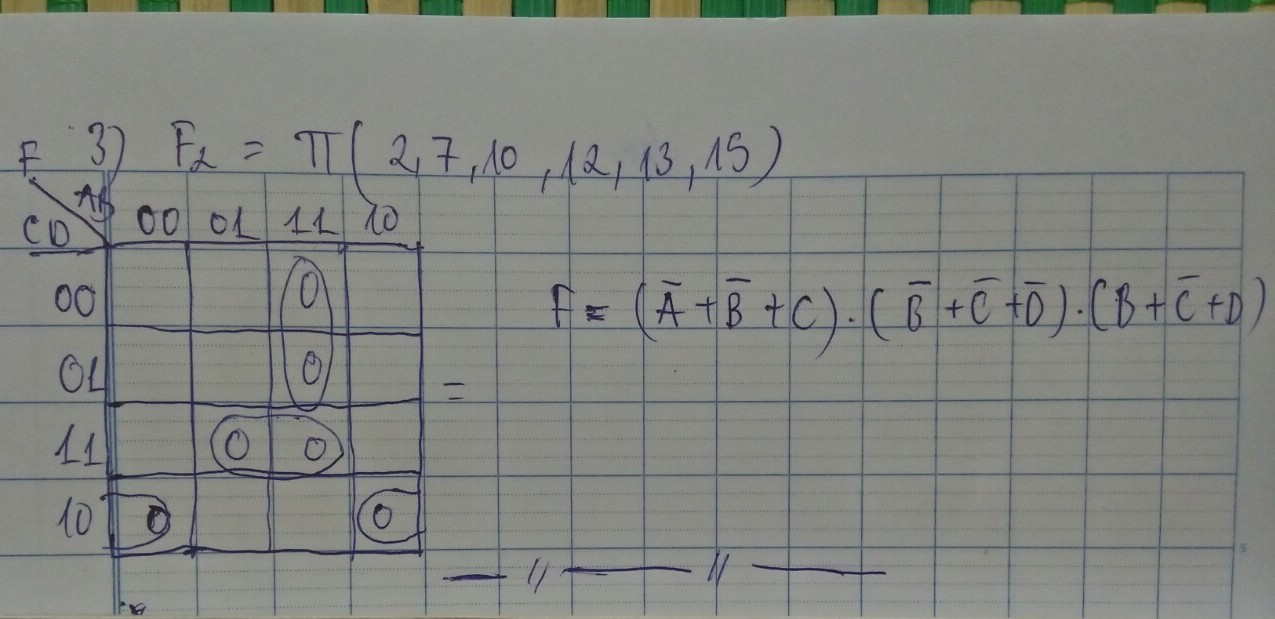 3) F₂ = π( 2, 7, 10 , 12, 13, 15)
F AB
CD 00 01 11 10
00 0
01 0
11 0 0
10 0 0
F = (A̅ + B̅ + C) . ( B̅ + C̅ + D̅) . (B + C̅ + D)
=
— // — // —